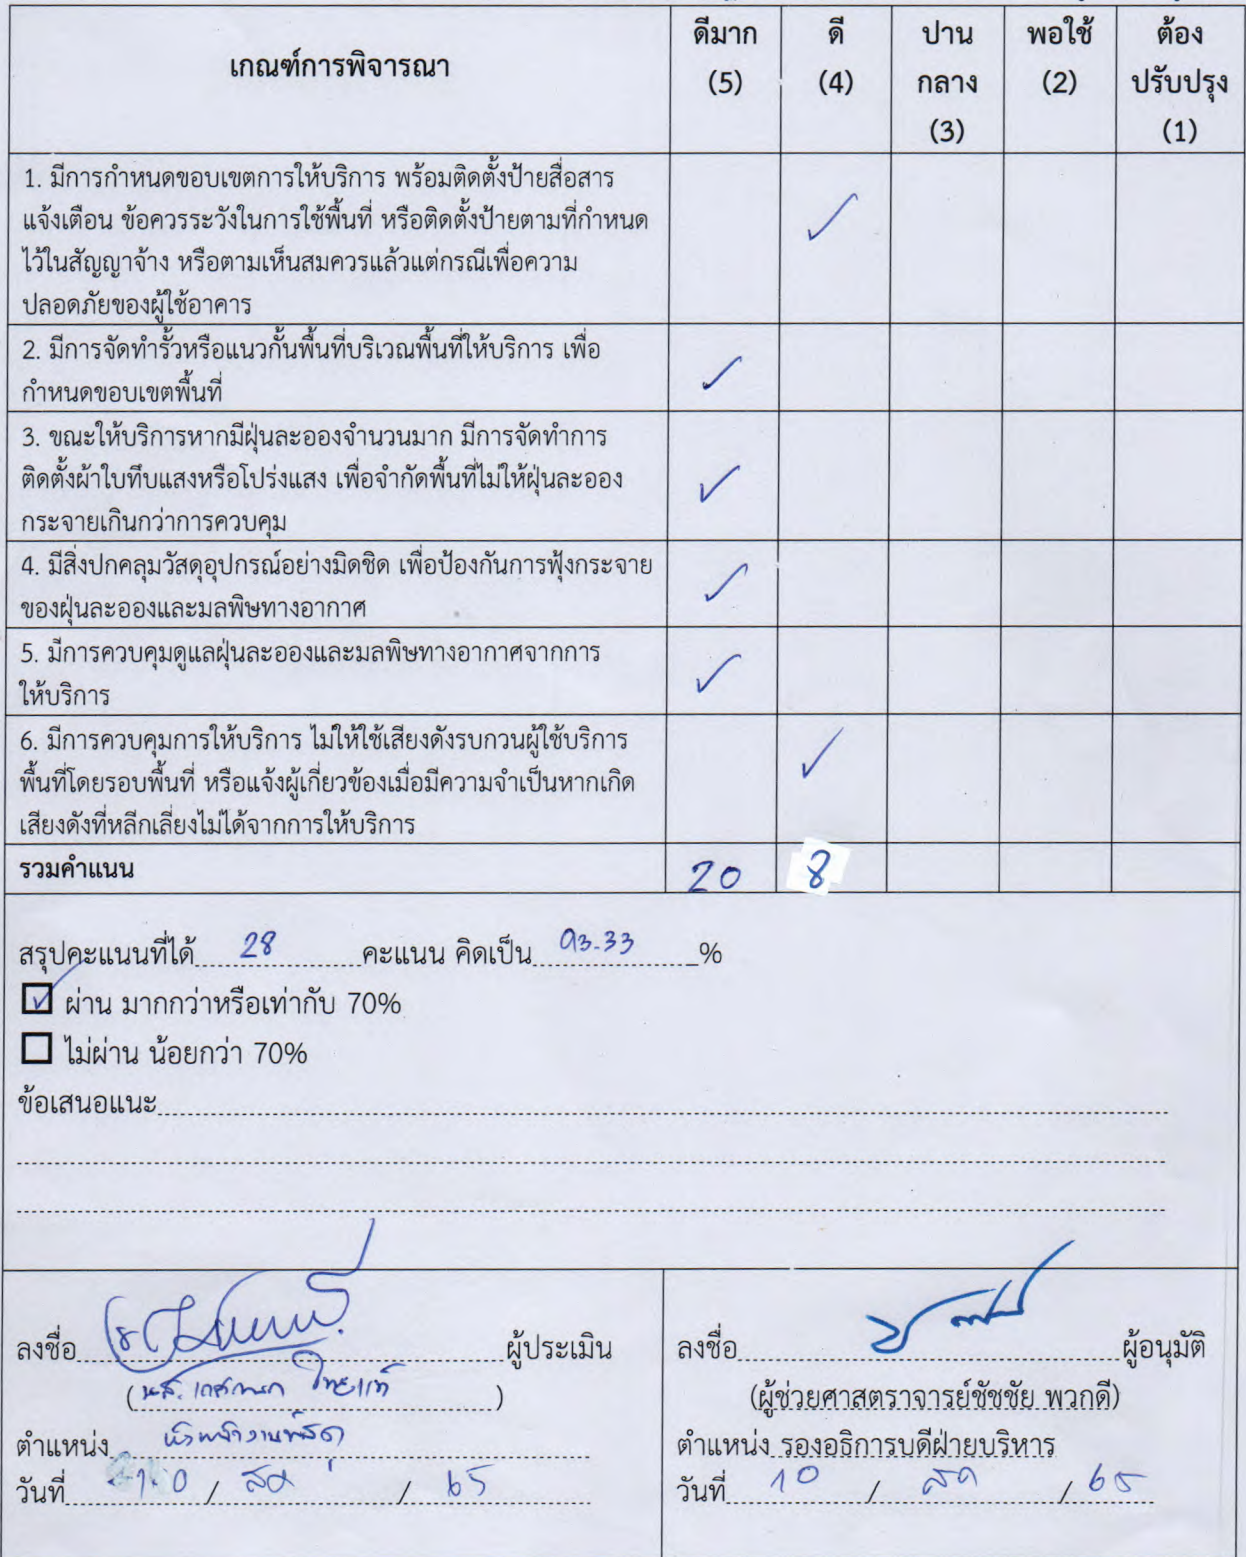 เกณฑ์การพิจารณา
ดีมาก
(5)
ดี
(4)
ปาน
กลาง
(3)
พอใช้
(2)
ต้อง
ปรับปรุง
(1)
1. มีการกำหนดขอบเขตการให้บริการ พร้อมติดตั้งป้ายสื่อสาร
แจ้งเตือน ข้อควรระวังในการใช้พื้นที่ หรือติดตั้งป้ายตามที่กำหนด
ไว้ในสัญญาจ้าง หรือตามเห็นสมควรแล้วแต่กรณีเพื่อความ
ปลอดภัยของผู้ใช้อาคาร
✓
2. มีการจัดทำรั้วหรือแนวกั้นพื้นที่บริเวณพื้นที่ให้บริการ เพื่อ
กำหนดขอบเขตพื้นที่
✓
3. ขณะให้บริการหากมีฝุ่นละอองจำนวนมาก มีการจัดทำการ
ติดตั้งผ้าใบทึบแสงหรือโปร่งแสง เพื่อจำกัดพื้นที่ไม่ให้ฝุ่นละออง
กระจายเกินกว่าการควบคุม
✓
4. มีสิ่งปกคลุมวัสดุอุปกรณ์อย่างมิดชิด เพื่อป้องกันการฟุ้งกระจาย
ของฝุ่นละอองและมลพิษทางอากาศ
✓
5. มีการควบคุมดูแลฝุ่นละอองและมลพิษทางอากาศจากการ
ให้บริการ
✓
6. มีการควบคุมการให้บริการ ไม่ให้ใช้เสียงดังรบกวนผู้ใช้บริการ
พื้นที่โดยรอบพื้นที่ หรือแจ้งผู้เกี่ยวข้องเมื่อมีความจำเป็นหากเกิด
เสียงดังที่หลีกเลี่ยงไม่ได้จากการให้บริการ
✓
รวมคำแนน 20 8
สรุปคะแนนที่ได้ 28 คะแนน คิดเป็น 93.33 %
☑ ผ่าน มากกว่าหรือเท่ากับ 70%
☐ ไม่ผ่าน น้อยกว่า 70%
ข้อเสนอแนะ
ลงชื่อ ผู้ประเมิน
(นส. ไทยแท้)
ตำแหน่ง หัวหน้างานพัสดุ
วันที่ 10 / สค / 65
ลงชื่อ ผู้อนุมัติ
(ผู้ช่วยศาสตราจารย์ชัชชัย พวกดี)
ตำแหน่ง รองอธิการบดีฝ่ายบริหาร
วันที่ 10 / สค / 65